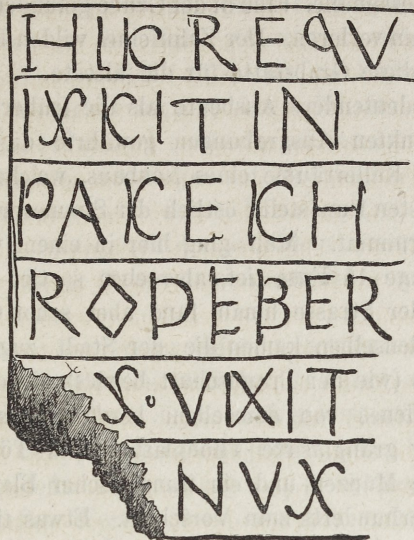 HIC REQV
IXCIT IN
PACE CH
ROPEBER
S·VIXIT
NVX